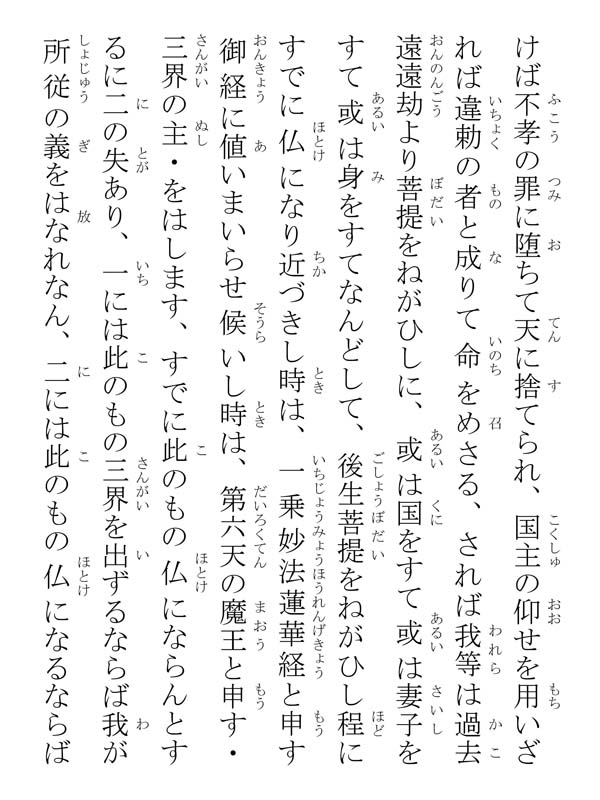 けば不孝の罪に堕ちて天に捨てられ、国主の仰せを用いざ
れば違勅の者と成りて命をめさる、されば我等は過去
遠遠劫より菩提をねがひしに、或は国をすて或は妻子を
すて或は身をすてなんどして、後生菩提をねがひし程に
すでに仏になり近づきし時は、一乗妙法蓮華経と申す
御経に値いまいらせ候いし時は、第六天の魔王と申す・
三界の主・をはします、すでに此のもの仏にならんとす
るに二の失あり、一には此のもの三界を出ずるならば我が
所従の義をはなれなん、二には此のもの仏になるならば